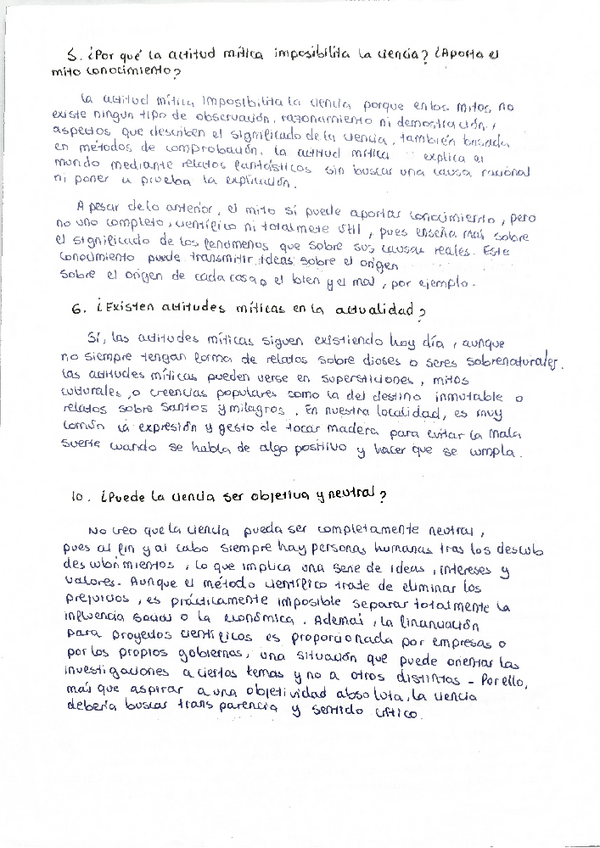 5. ¿Por qué la actitud mítica imposibilita la ciencia? ¿Aporta el
mito conocimiento?
La actitud mítica imposibilita la ciencia porque en los mitos no
existe ningún tipo de observación, razonamiento ni demostración,
aspectos que describen el significado de la ciencia, también basada
en métodos de comprobación. La actitud mítica explica el
mundo mediante relatos fantásticos sin buscar una causa racional
ni poner a prueba la explicación.
A pesar de lo anterior, el mito sí puede aportar conocimiento, pero
no uno completo, científico ni totalmete útil, pues enseña más sobre
el significado de los fenómenos que sobre sus causas reales. Este
conocimiento puede transmitir ideas sobre el origen
sobre el origen de cada cosa, o el bien y el mal, por ejemplo.
6. ¿Existen actitudes míticas en la actualidad?
Sí, las actitudes míticas siguen existiendo hoy día, aunque
no siempre tengan forma de relatos sobre dioses o seres sobrenaturales.
Las actitudes míticas pueden verse en supersticiones, mitos
culturales, o creencias populares como la del destino inmutable o
relatos sobre santos y milagros. En nuestra localidad, es muy
común la expresión y gesto de tocar madera para evitar la mala
suerte cuando se habla de algo positivo y hacer que se cumpla.
10. ¿Puede la ciencia ser objetiva y neutral?
No creo que la ciencia pueda ser completamente neutral,
pues al fin y al cabo siempre hay personas humanas tras los descub
descubrimientos, lo que implica una serie de ideas, intereses y
valores. Aunque el método científico trate de eliminar los
prejuicios, es prácticamente imposible separar totalmente la
influencia social o la económica. Además, la financiación
para proyectos científicos es proporcionada por empresas o
por los propios gobiernos, una situación que puede orientar las
investigaciones a ciertos temas y no a otros distintos - Por ello,
más que aspirar a una objetividad absoluta, la ciencia
debería buscar transparencia y sentido crítico.